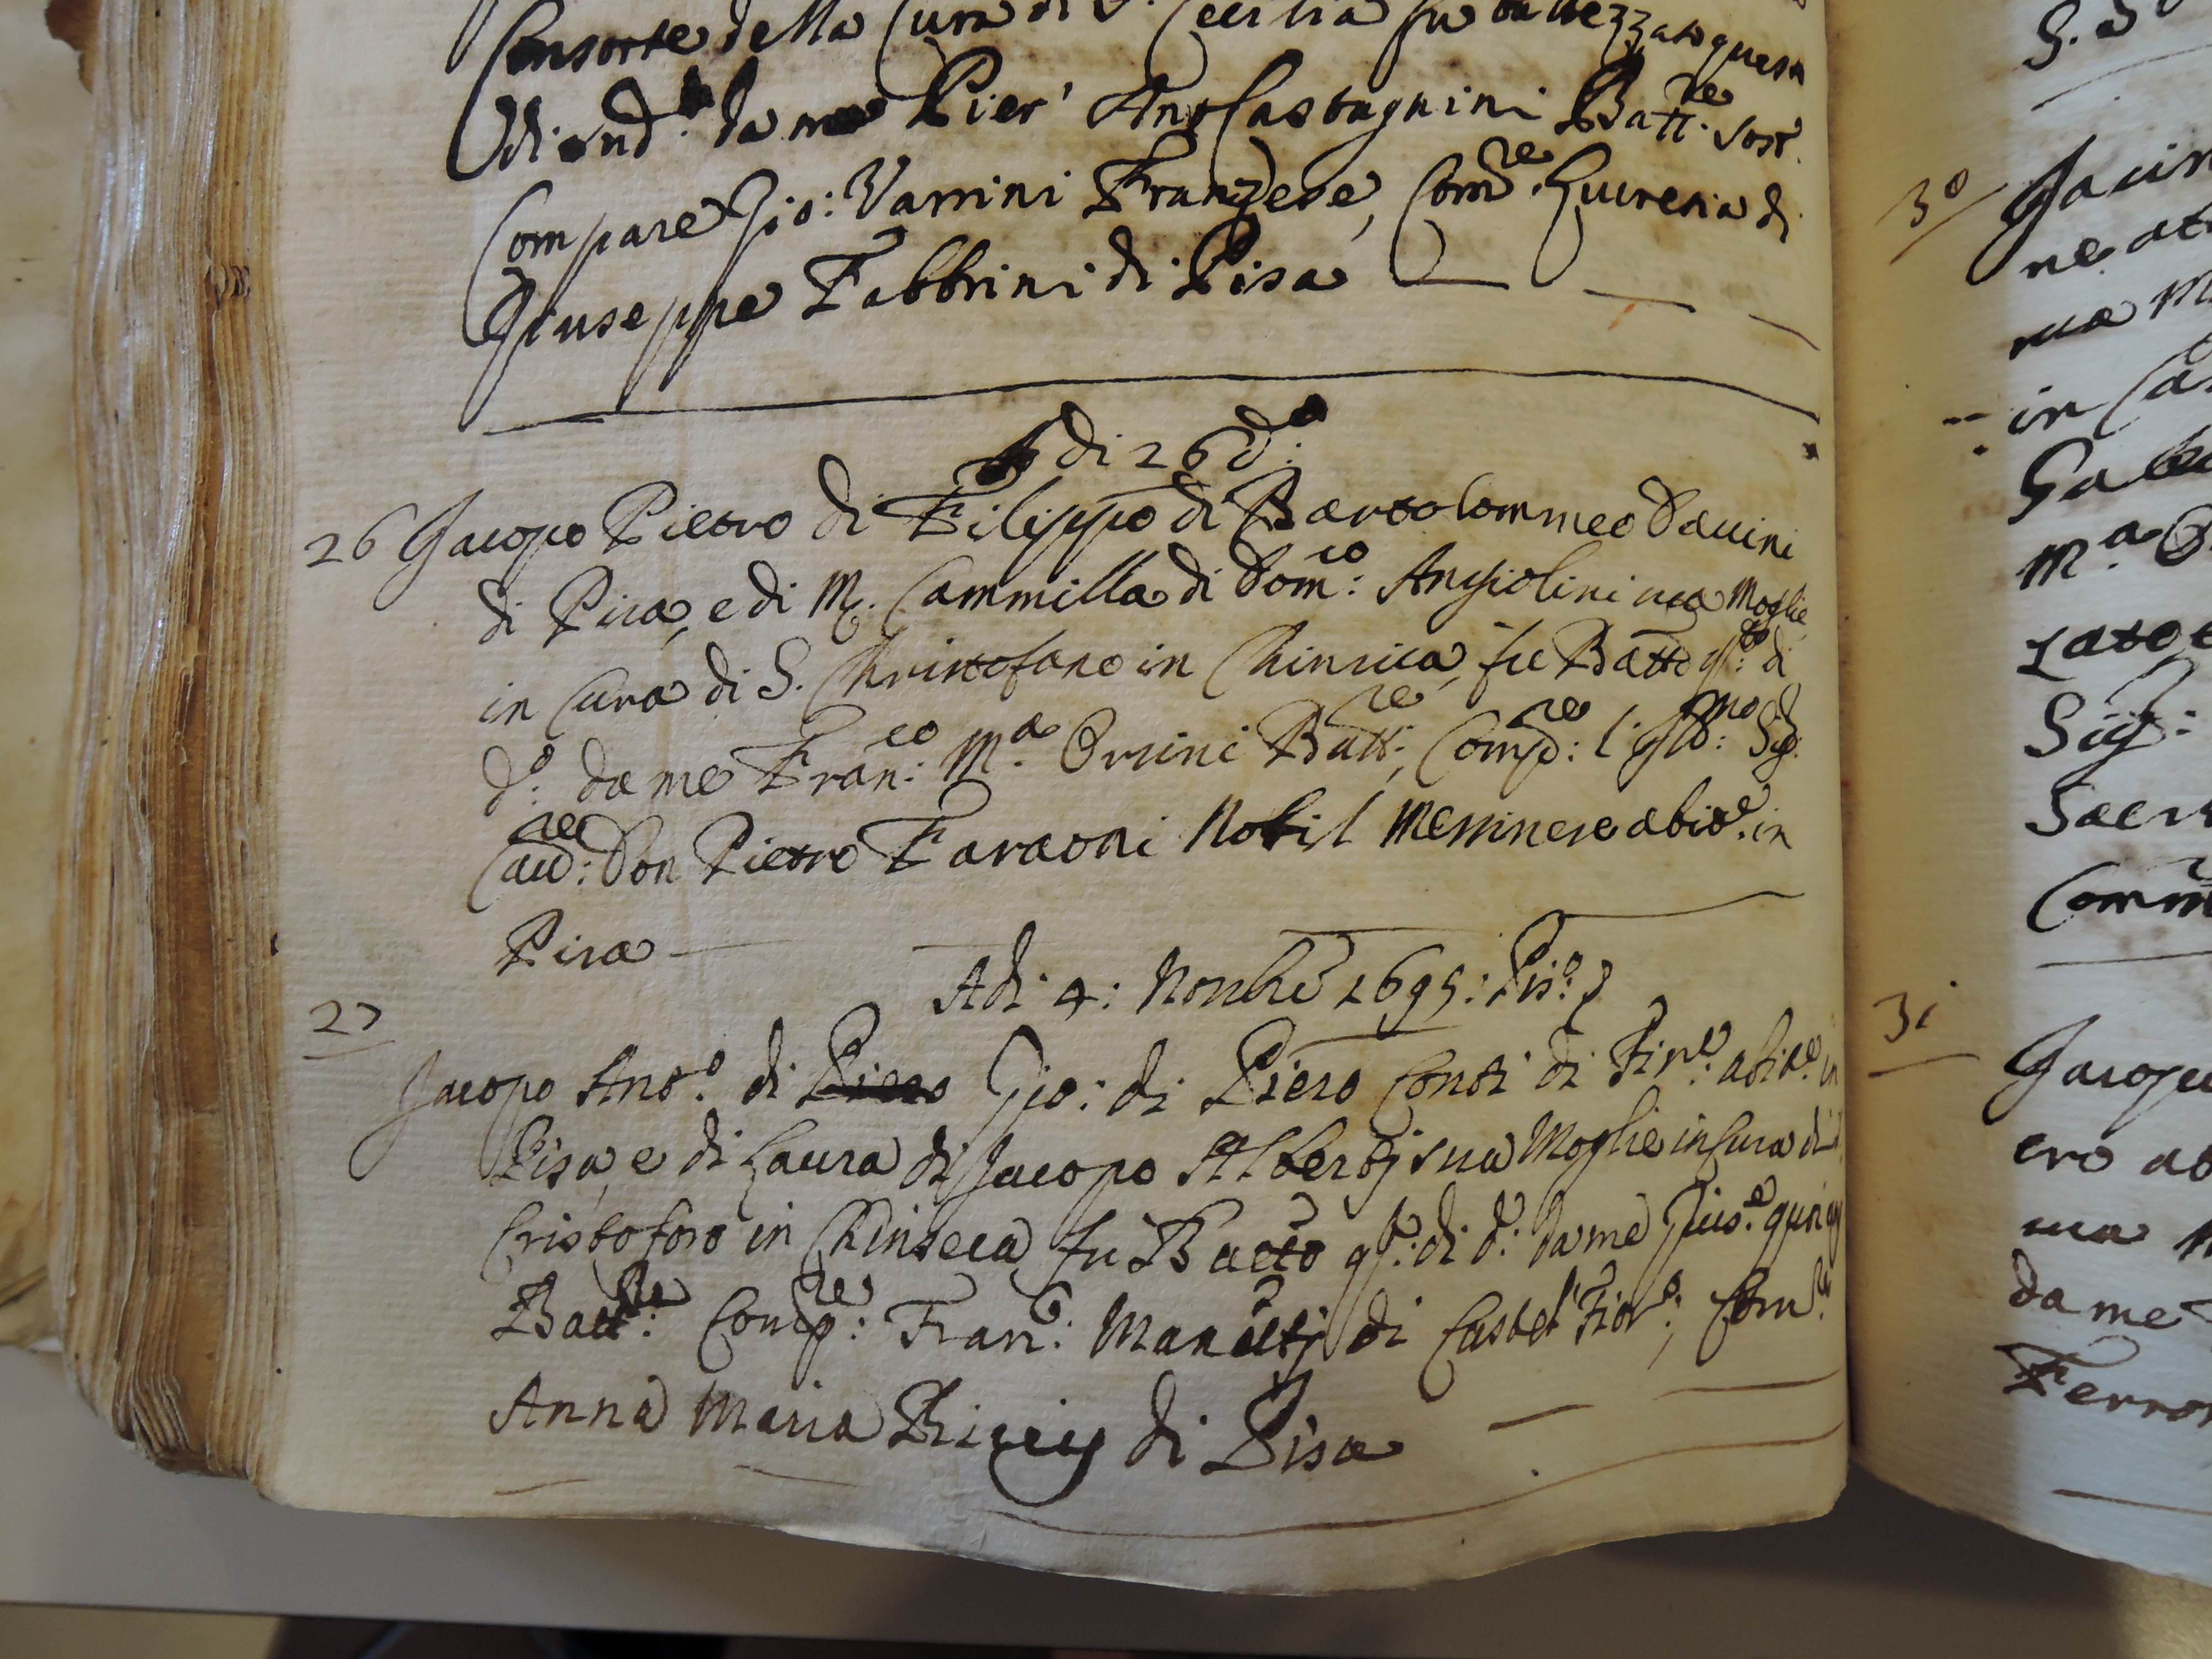 Consorte della Cura di S. Cecilia fu battezzato questo
di sud.to da me Pier' Ant.o Castagnini Batt.re sost.
Compare Gio: Varrini Franzese, Com.re Lucresia di
Giuseppe Fabbrini di Pisa
A di 26 d.o
26 Jacopo Pietro di Filippo di Bartolommeo Davini
di Pisa, e di M. Cammilla di Dom.co Angiolini sua Moglie
in Cura di S. Christofano in Chinsica, fu Batto q.to di
d.o da me Fran.co M.a Orsini Batt.re, Comp.re l'Ill.mo Sig.
Cav.re Don Pietro Faraoni Nobil Messinese abit.e in
Pisa
Adi 4: Nonbre 1695: Pis.o
27
Jacopo Ant.o di Piero Gio: di Piero Conti di Fir.e abit.e in
Pisa, e di Laura di Jacopo Albertj sua Moglie in Cura di
Cristoforo in Chinseca, fu Batto q.o di d.o da me Gius.e
Batt.re Comp.re Fran.o di Castel Fior.o; Com.re
Anna Maria di Pisa
30
Jacopo
da me
Sig:
in
31